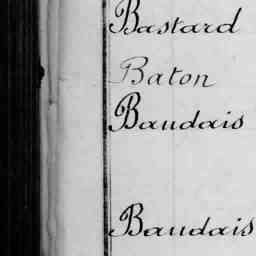 Bastard
Baton
Baudais
Baudais